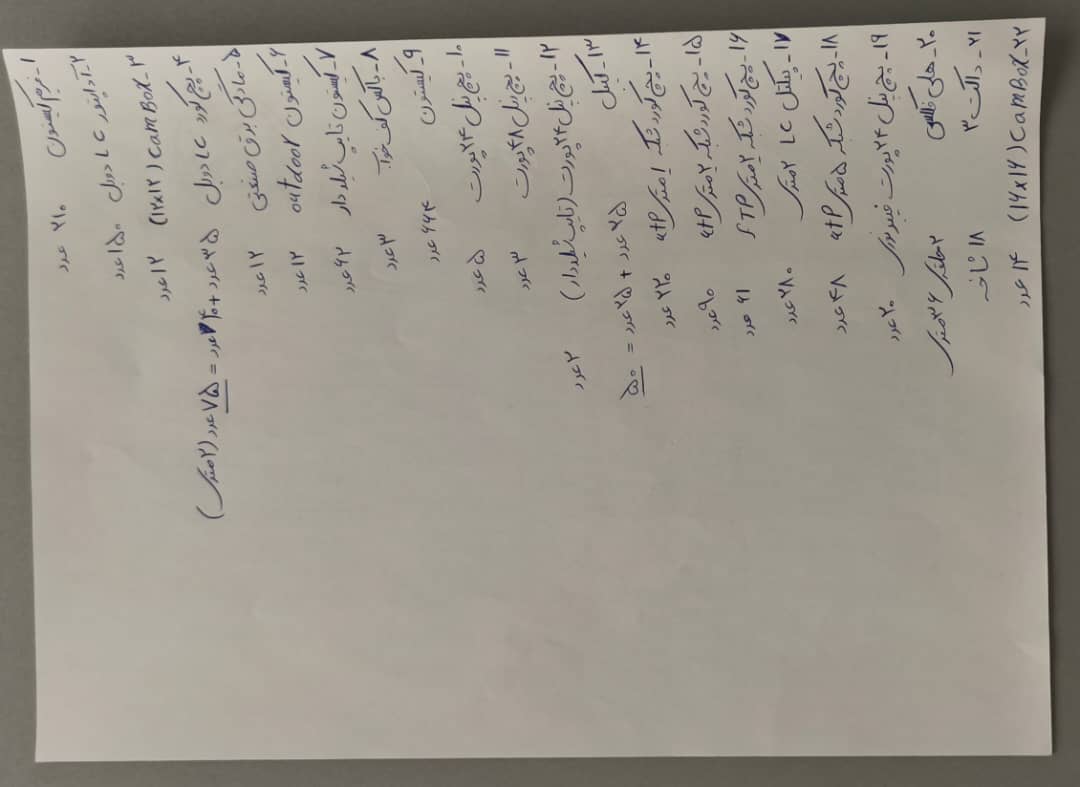 ۱- فرم کیستون ۲۱۰ عدد
۲- آداپتور LC دوبل ۱۵۰ عدد
۳- CAMBOX (۱۲x۱۲) ۱۲ عدد
۴- پچ کورد LC دوبل ۳۵ عدد + ۴۰ عدد = ۷۵ عدد (۲ متری)
۵- مادگی برق صنعتی ۱۲ عدد
۶- کیستون outdoor ۱۲ عدد
۷- کیستون تایپ شیلددار ۶۲ عدد
۸- باکس کف خواب ۳ عدد
۹- کیستون ۶۶۴ عدد
۱۰- پچ پنل ۲۴ پورت ۵ عدد
۱۱- پچ پنل ۴۸ پورت ۳ عدد
۱۲- پچ پنل ۲۴ پورت (تایپ شیلددار) ۲ عدد
۱۳- کیبل ۲۵ عدد + ۲۵ عدد = ۵۰
۱۴- پچ کورد شبکه ۱ متری utp ۲۲۰ عدد
۱۵- پچ کورد شبکه ۲ متری utp ۹۰ عدد
۱۶- پچ کورد شبکه ۲ متری fTP ۶۱ عدد
۱۷- پیگتل LC ۲ متری ۲۸۰ عدد
۱۸- پچ کورد شبکه ۵ متری utp ۴۸ عدد
۱۹- پچ پنل ۲۴ پورت فیبر نوری ۲۰ عدد
۲۰- فلکسی ۲ حلقه ۳۶ متری
۲۱- داکت ۳ ۱۸ شاخه
۲۲- CAMBOX (۱۶x۱۶) ۱۴ عدد